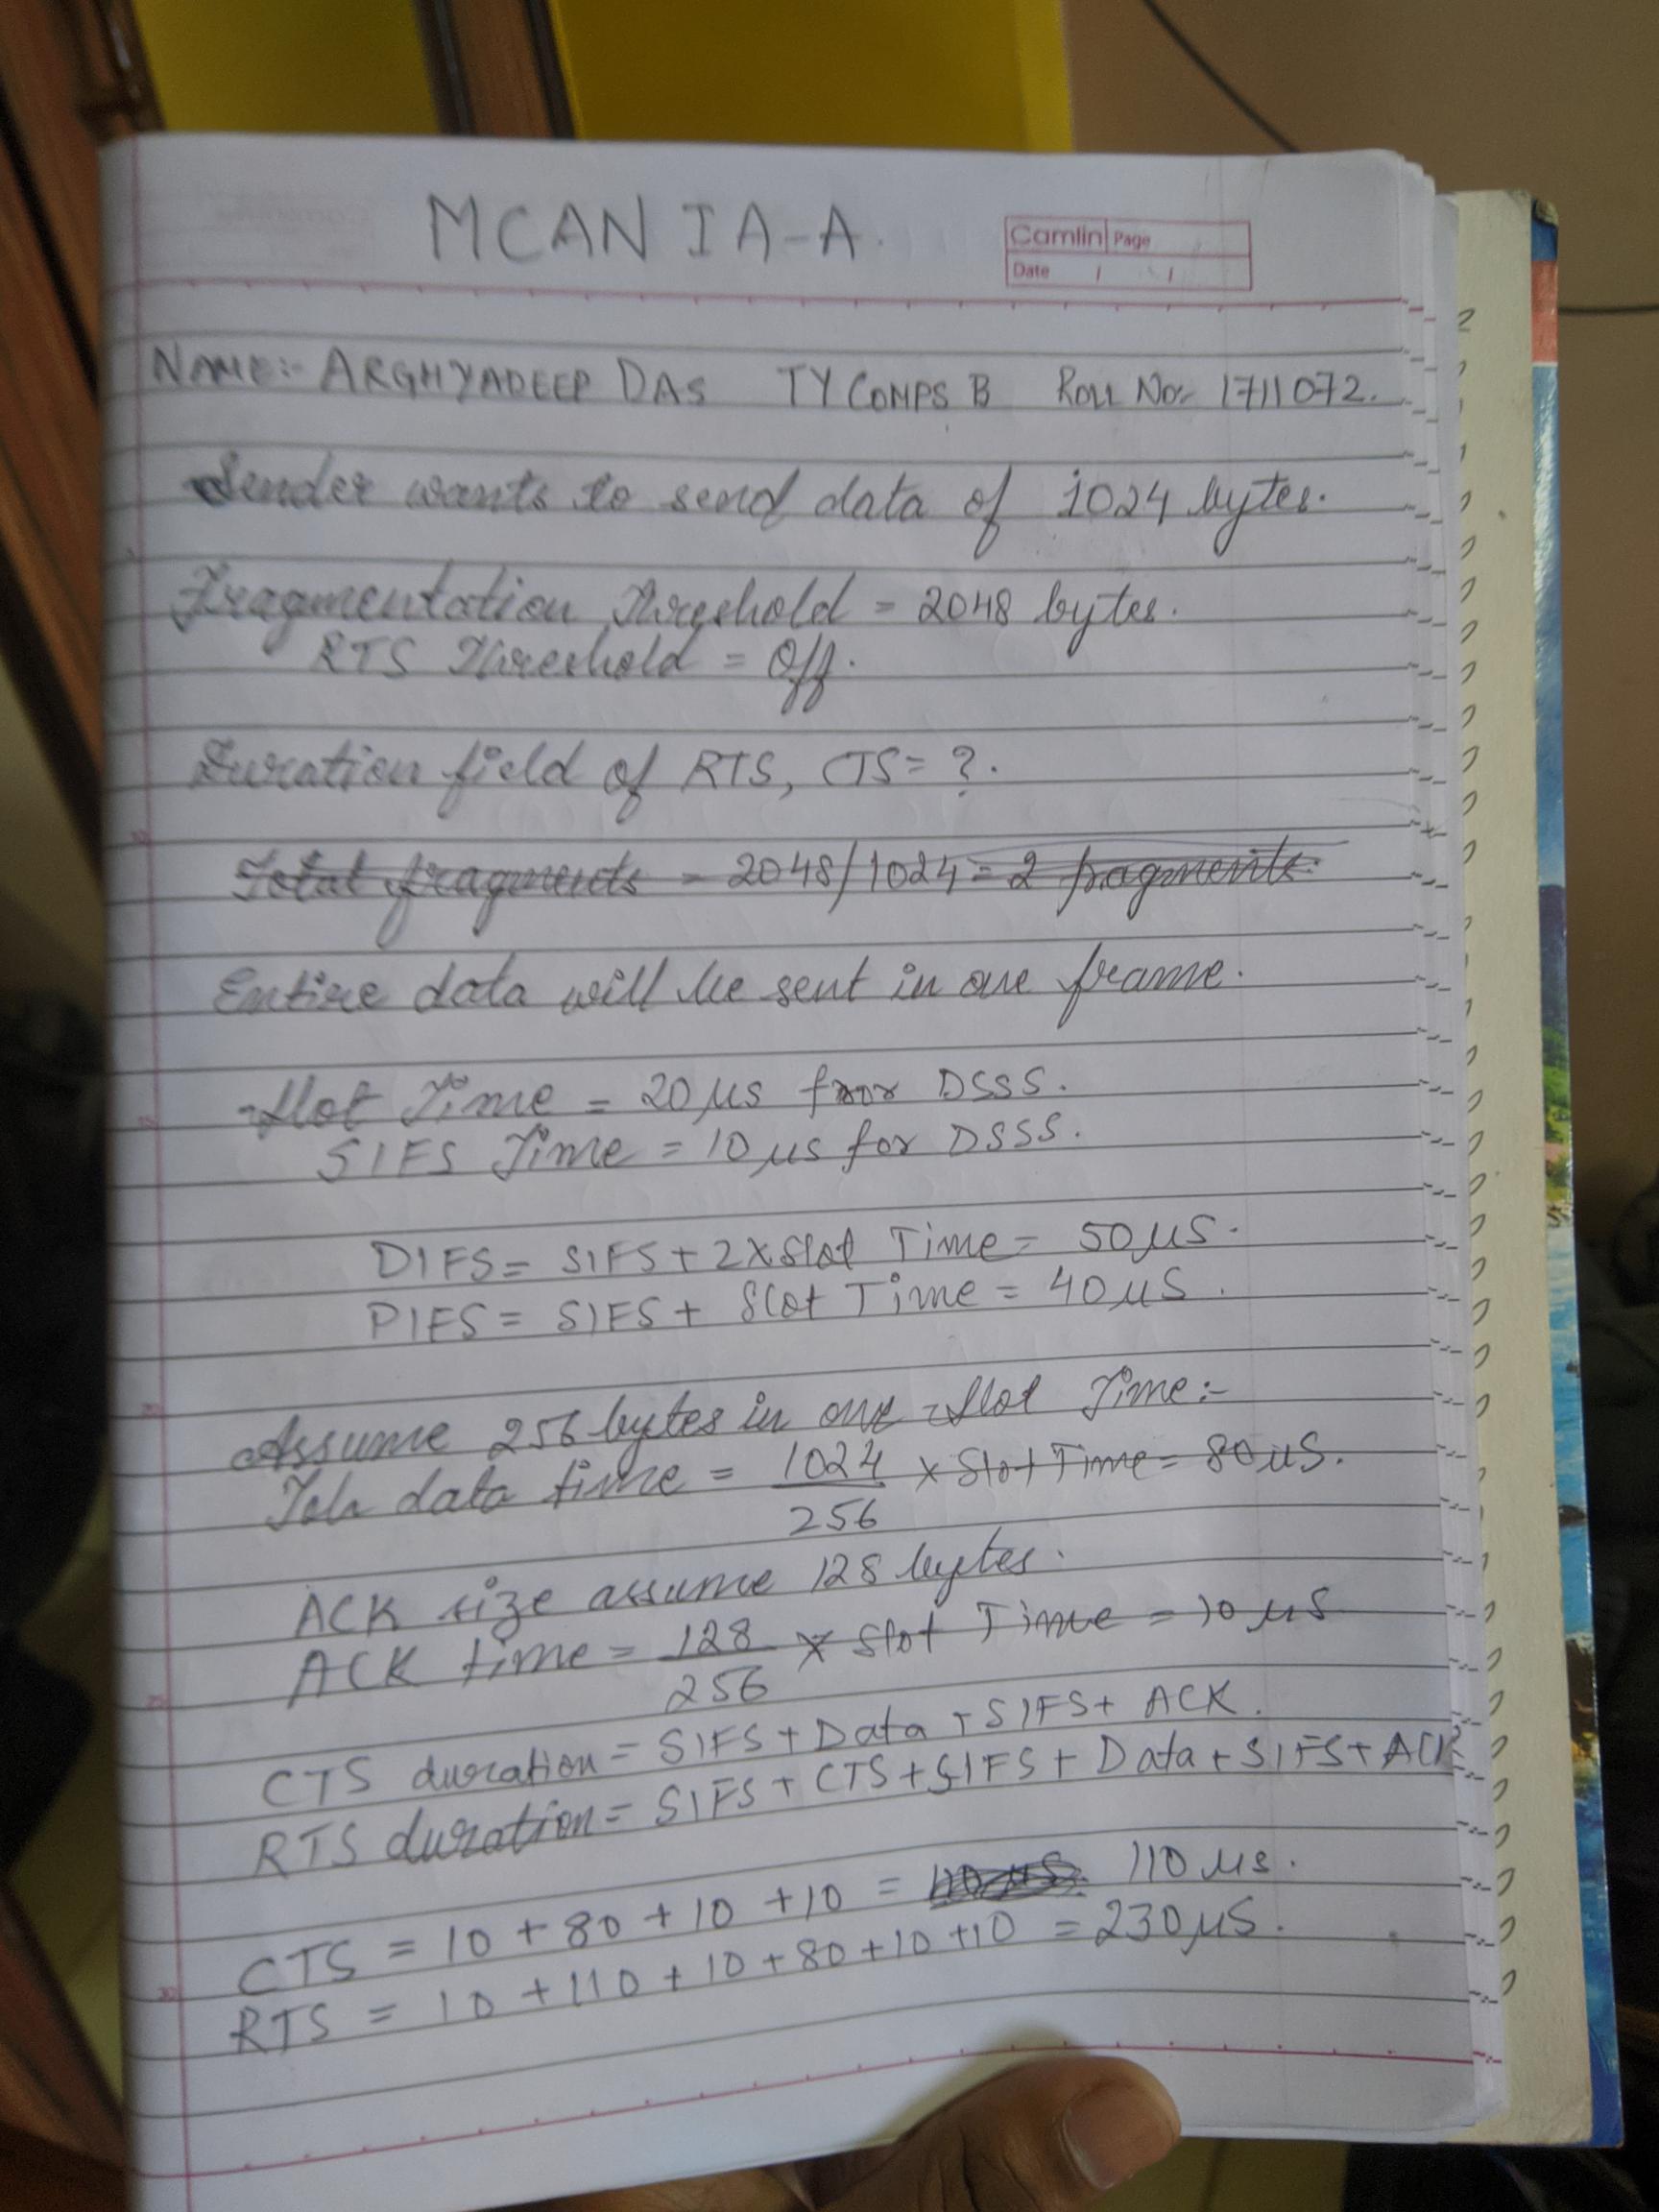 MCAN IA-A.
Camlin Page
Date / /
NAME:- ARGHYADEEP DAS TY COMPS B ROLL No:- 1711072.
Sender wants to send data of 1024 bytes.
Fragmentation Threshold = 2048 bytes.
RTS Threshold = Off.
Duration field of RTS, CTS = ?.
Total fragments = 2048/1024 = 2 fragments.
Entire data will be sent in one frame.
Slot Time = 20 μs for DSSS.
SIFS Time = 10 μs for DSSS.
DIFS = SIFS + 2 x Slot Time = 50 μs.
PIFS = SIFS + Slot Time = 40 μs.
Assume 256 bytes in one Slot Time :-
data time = 1024/256 x Slot Time = 80 μs.
ACK size assume 128 bytes.
ACK time = 128/256 x Slot Time = 10 μs
CTS duration = SIFS + Data + SIFS + ACK.
RTS duration = SIFS + CTS + SIFS + Data + SIFS + ACK
CTS = 10 + 80 + 10 + 10 = 110 μs.
RTS = 10 + 110 + 10 + 80 + 10 + 10 = 230 μs.